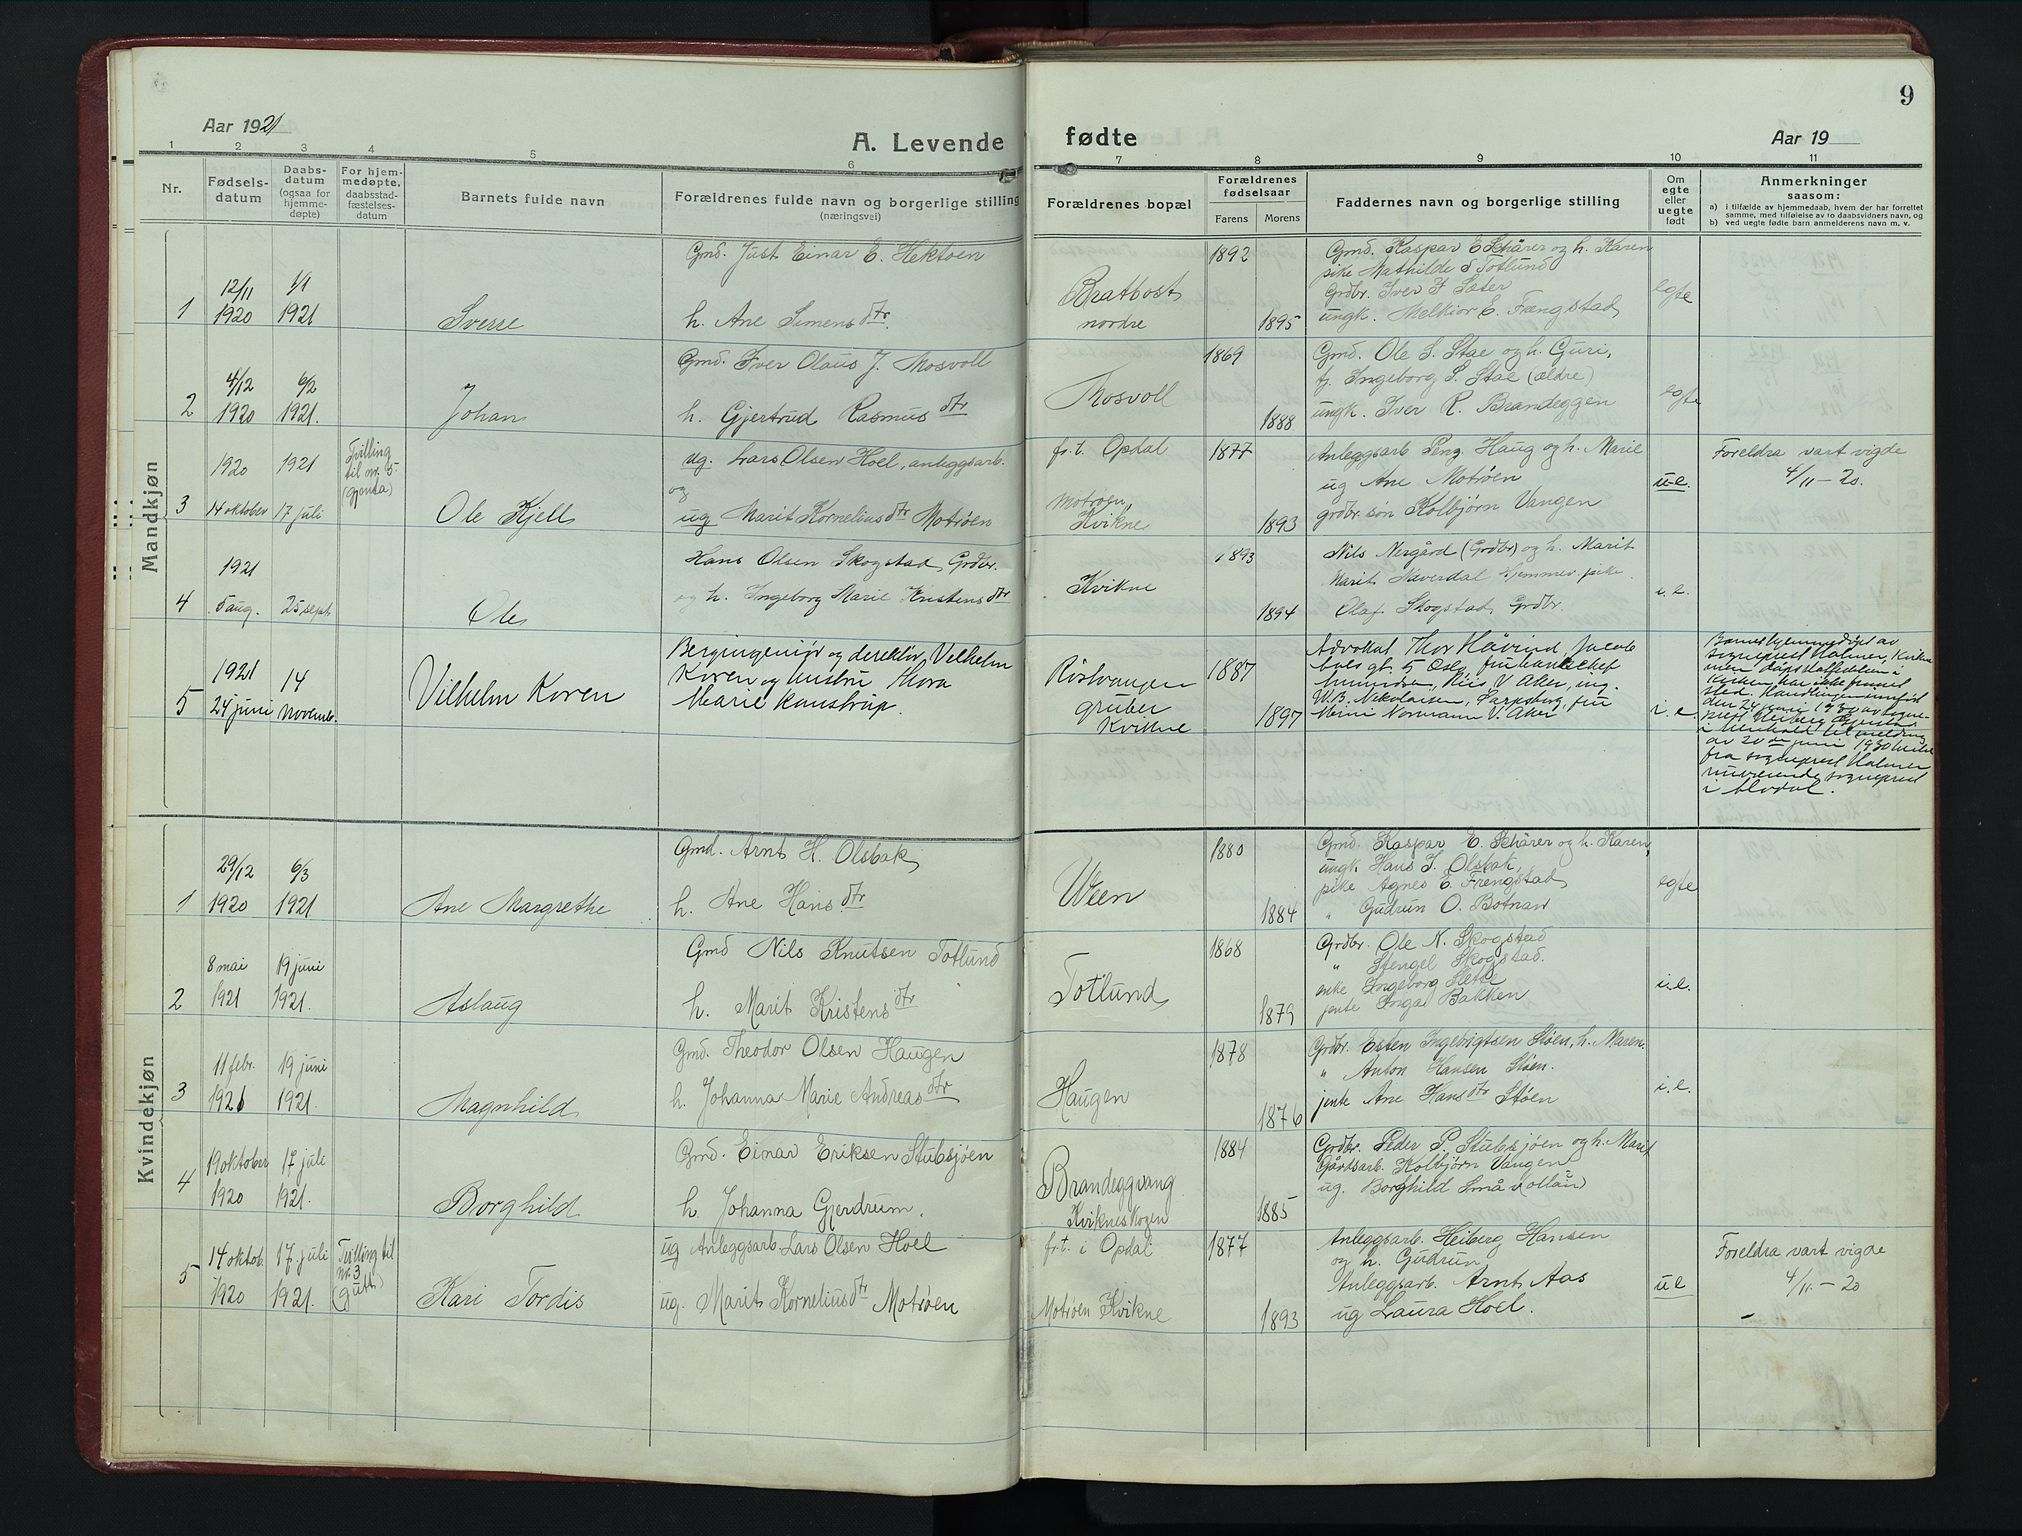 Aar 1921
A. Levende
fødte
Aar 19
9
1 2 3 4 5 6 7 8 9 10 11
Nr.
Fødsels-
datum
Daabs-
datum
(ogsaa for
hjemme-
døpte)
For hjem-
medøpte.
daabsstad-
fæstelses-
datum
Barnets fulde navn
Forældrenes fulde navn og borgerlige stilling
(næringsvei)
Forældrenes bopæl
Forældrenes
fødselsaar
Farens Morens
Faddernes navn og borgerlige stilling
Om
egte
eller
uegte
født
Anmerkninger
saasom:
a) i tilfælde av hjemmedaab, hvem der har forrettet
samme, med tilføielse av to daabsvidners navn, og
b) ved uegte fødte barn anmelderens navn m. v.
Mandkjøn
1
12/11
1920
1/1
1921
Sverre
Gmd. Just Einar E. Hektoen
h. Ane Simensdtr.
Bratbost
nordre
1892
1895
Gmd. Kaspar E. Schärer og h. Karen
pike Mathilde S Totlund
Grdbr. Iver J. Sæter
ungk. Melkior E. Frengstad
egte
2
4/12
1920
6/2
1921.
Johan
Gmd. Iver Olaus J. Mosvoll
h. Gjertrud Rasmusdtr
Mosvoll
1869
1888
Gmd. Ole S. Stae og h. Guri,
tj. Ingeborg S. Stae (ældre)
ungk. Iver R. Brandeggen
egte
3
1920
14 oktober
1921
17 juli
Tvilling
til nr. 5
(gjenta)
Ole Kjell
ug. Lars Olsen Hoel, anleggsarb.
og
ug Marit Korneliusdtr Motrøen
frt. Opdal
Motrøen,
Kvikne
1877
1893
Anleggsarb Haug og h. Marie
ug Ane Motrøen
grdbr.søn Kolbjørn Vangen
u-e.
Foreldra vart vigde
4/11 – 20.
4
1921
5 aug.
25 sept.
Ole
Hans Olsen Skogstad, Grdbr.
og h. Ingeborg Marie Kristensdtr
Kvikne
1893
1894
Nils Nergård (Grdbr) og h. Marit
Marit Næverdal Hjemmev. pike.
Olaf Skogstad, Grdbr.
i. e.
5
1921
24 juni
14
Novemb.
Vilhelm Koren
Bergingeniør og direktør Vilhelm
Koren og hustru Thora
Marie Kaustrup.
Røstvangen
gruber
Kvikne
1887
1897
Advokat Thor Håvind, Jacob
Aalls gt. 5 Oslo, fru
Amundsen, Riis V Aker, ing.
W.B. Nikolaisen, Sarpsborg, fru
Mimi Normann V. Aker
i. e.
Barnet hjemmedøpt av
sogneprest Halmer, Kvikne
men dåpsstadfestelsen i
kirken har ikke funnet
sted.
der 24 juni 1930 av sogne-
prest Heiberg
i henhold til melding
av 20de juni 1930
fra sogneprest Halmer
nuværende sogneprest
i Alvdal.
Kvindekjøn
1
29/12
1920
6/3
1921
Ane Margrethe
Gmd. Arnt H. Olsbak
h. Ane Hansdtr
Ween
1880
1884
Gmd. Kaspar E. Schärer og h. Karen,
ungk. Hans J. Olsbak,
pike Agnes E. Frengstad
" Gudrun O. Botnan
egte
2
8 mai
1921
19 juni
1921.
Aslaug
Gmd Nils Knutsen Totlund
h. Marit Kristensdtr
Totlund
1868
1879
Grdbr. Ole N. Skogstad
" Stengel Skogstad.
enke Ingeborg Slette
jente Inga Bakken
i.e.
3
11 febr.
1921
19 juni
1921.
Magnhild
Gmd. Theodor Olsen Haugen
h. Johanna Marie Andreasdtr
Haugen
1878
1876
Grdbr. Esten Ingebrigtsen Støen, h. Maren.
" Anton Hansen Støen.
jente Ane Hansdtr Støen
i.e.
4
19 oktober
1920
17 juli
1921.
Borghild
Gmd. Einar Eriksen Stubsjøen
h. Johanna Gjerdrum.
Brandeggvang
Kvikneskogen
1884
1885
Grdbr. Peder P. Stubsjøen og h. Marit
Gårdsarb. Kolbjørn Vangen
ug. Borghild Små
5
14 oktob.
1920
17. juli
1921.
Tvilling til
nr. 3
(gutt)
Kari Tordis
ug Anleggsarb. Lars Olsen Hoel
ug. Marit Korneliusdtr Motrøen
frt. i Opdal
Motrøen Kvikne
1877
1893
Anleggsarb. Heiberg Hansen
og h. Gudrun
Anleggsarb. Arnt Aas
ug Laura Hoel.
ue
Foreldra vart vigde
4/11 – 20